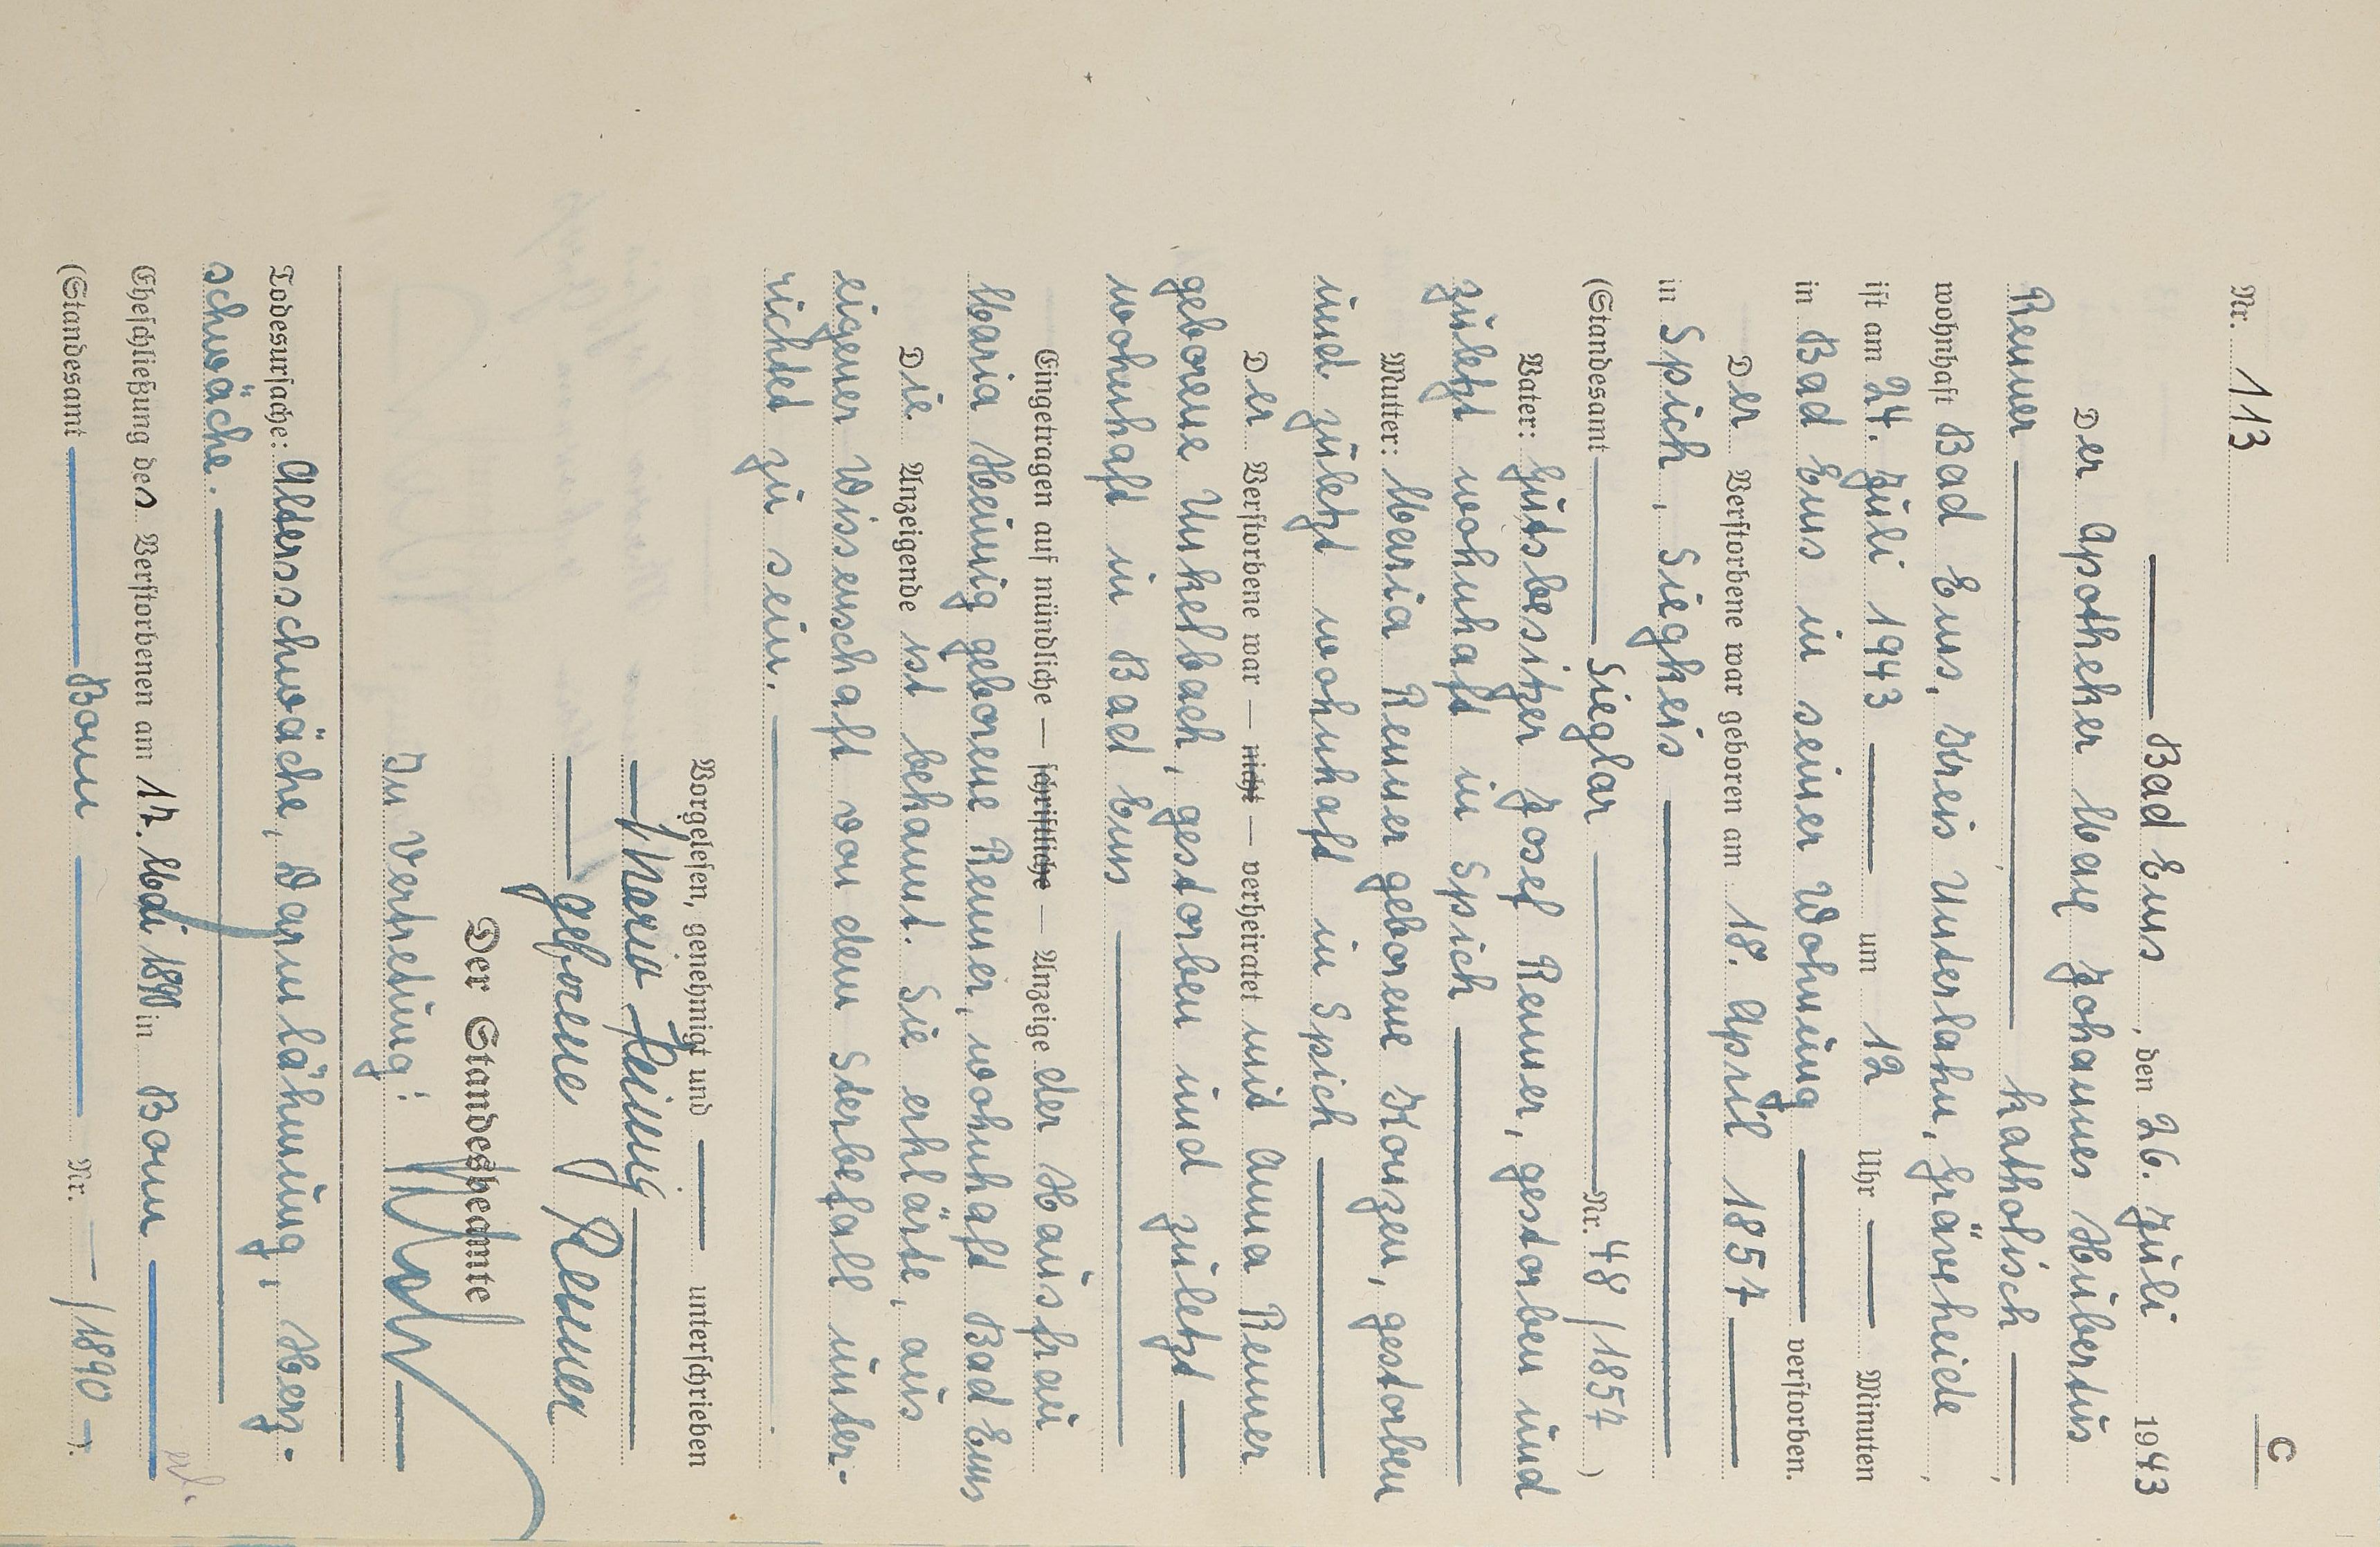 C
Nr. 113
Bad Ems, den 26. Juli 1943
Der Apotheker Max Johannes Hubertus
Renner katholisch
wohnhaft Bad Ems, Kreis Unterlahn, Gräveheide
ist am 24. Juli 1943 um 12 Uhr Minuten
in Bad Ems in seiner Wohnung verstorben.
Der Verstorbene war geboren am 18. April 1857
in Spich, Siegkreis
(Standesamt Sieglar Nr. 48/1857)
Vater: Gutsbesitzer Josef Renner, gestorben und
zuletzt wohnhaft in Spich
Mutter: Maria Renner geborene Konzen, gestorben
und zuletzt wohnhaft in Spich
Der Verstorbene war — nicht — verheiratet mit Anna Renner
geborene Unkelbach, gestorben und zuletzt
wohnhaft in Bad Ems
Eingetragen auf mündliche — schriftliche — Anzeige der Hausfrau
Maria Heinig geborene Renner, wohnhaft Bad Ems
Die Anzeigende ist bekannt. Sie erklärte, aus
eigener Wissenschaft von dem Sterbefall unter-
richtet zu sein.
Vorgelesen, genehmigt und unterschrieben
Maria Heinig
geborene Renner
Der Standesbeamte
In Vertretung:
Todesursache: Altersschwäche, Darmlähmung, Herz-
schwäche.
Eheschließung des Verstorbenen am 17. Mai 1890 in Bonn
(Standesamt Bonn Nr. — /1890 —).